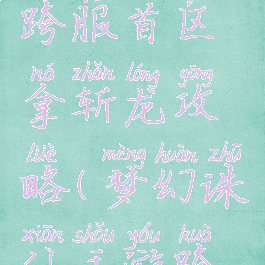 跨服首区
ná zhǎn lóng gōng
拿斩龙攻
lüè mèng huàn zhū
略(梦幻诛
xiān shǒu yóu kuà
仙手游跨